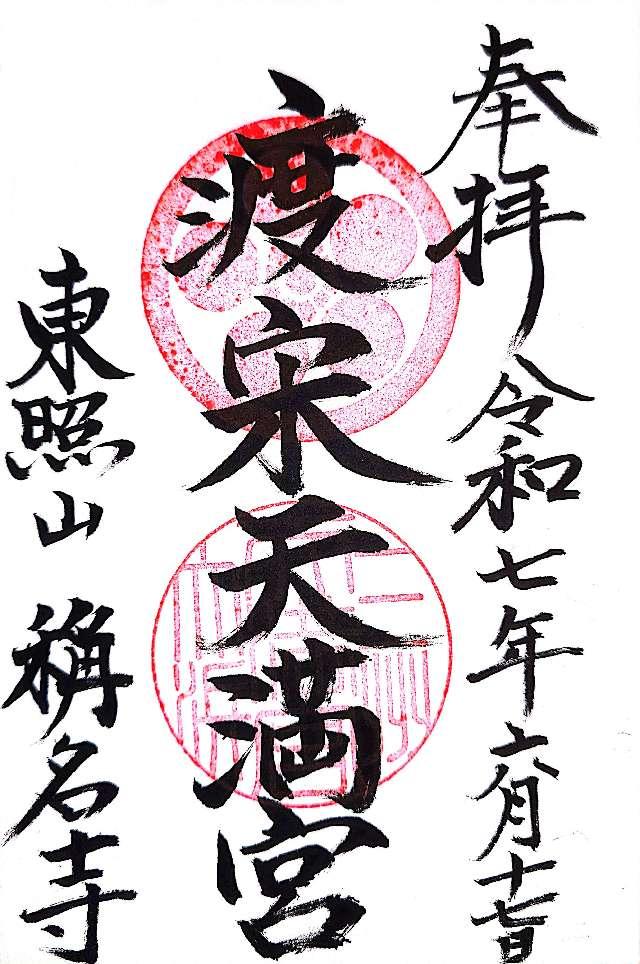 奉拝 令和七年六月十七日
渡宋天満宮
東照山 稱名寺